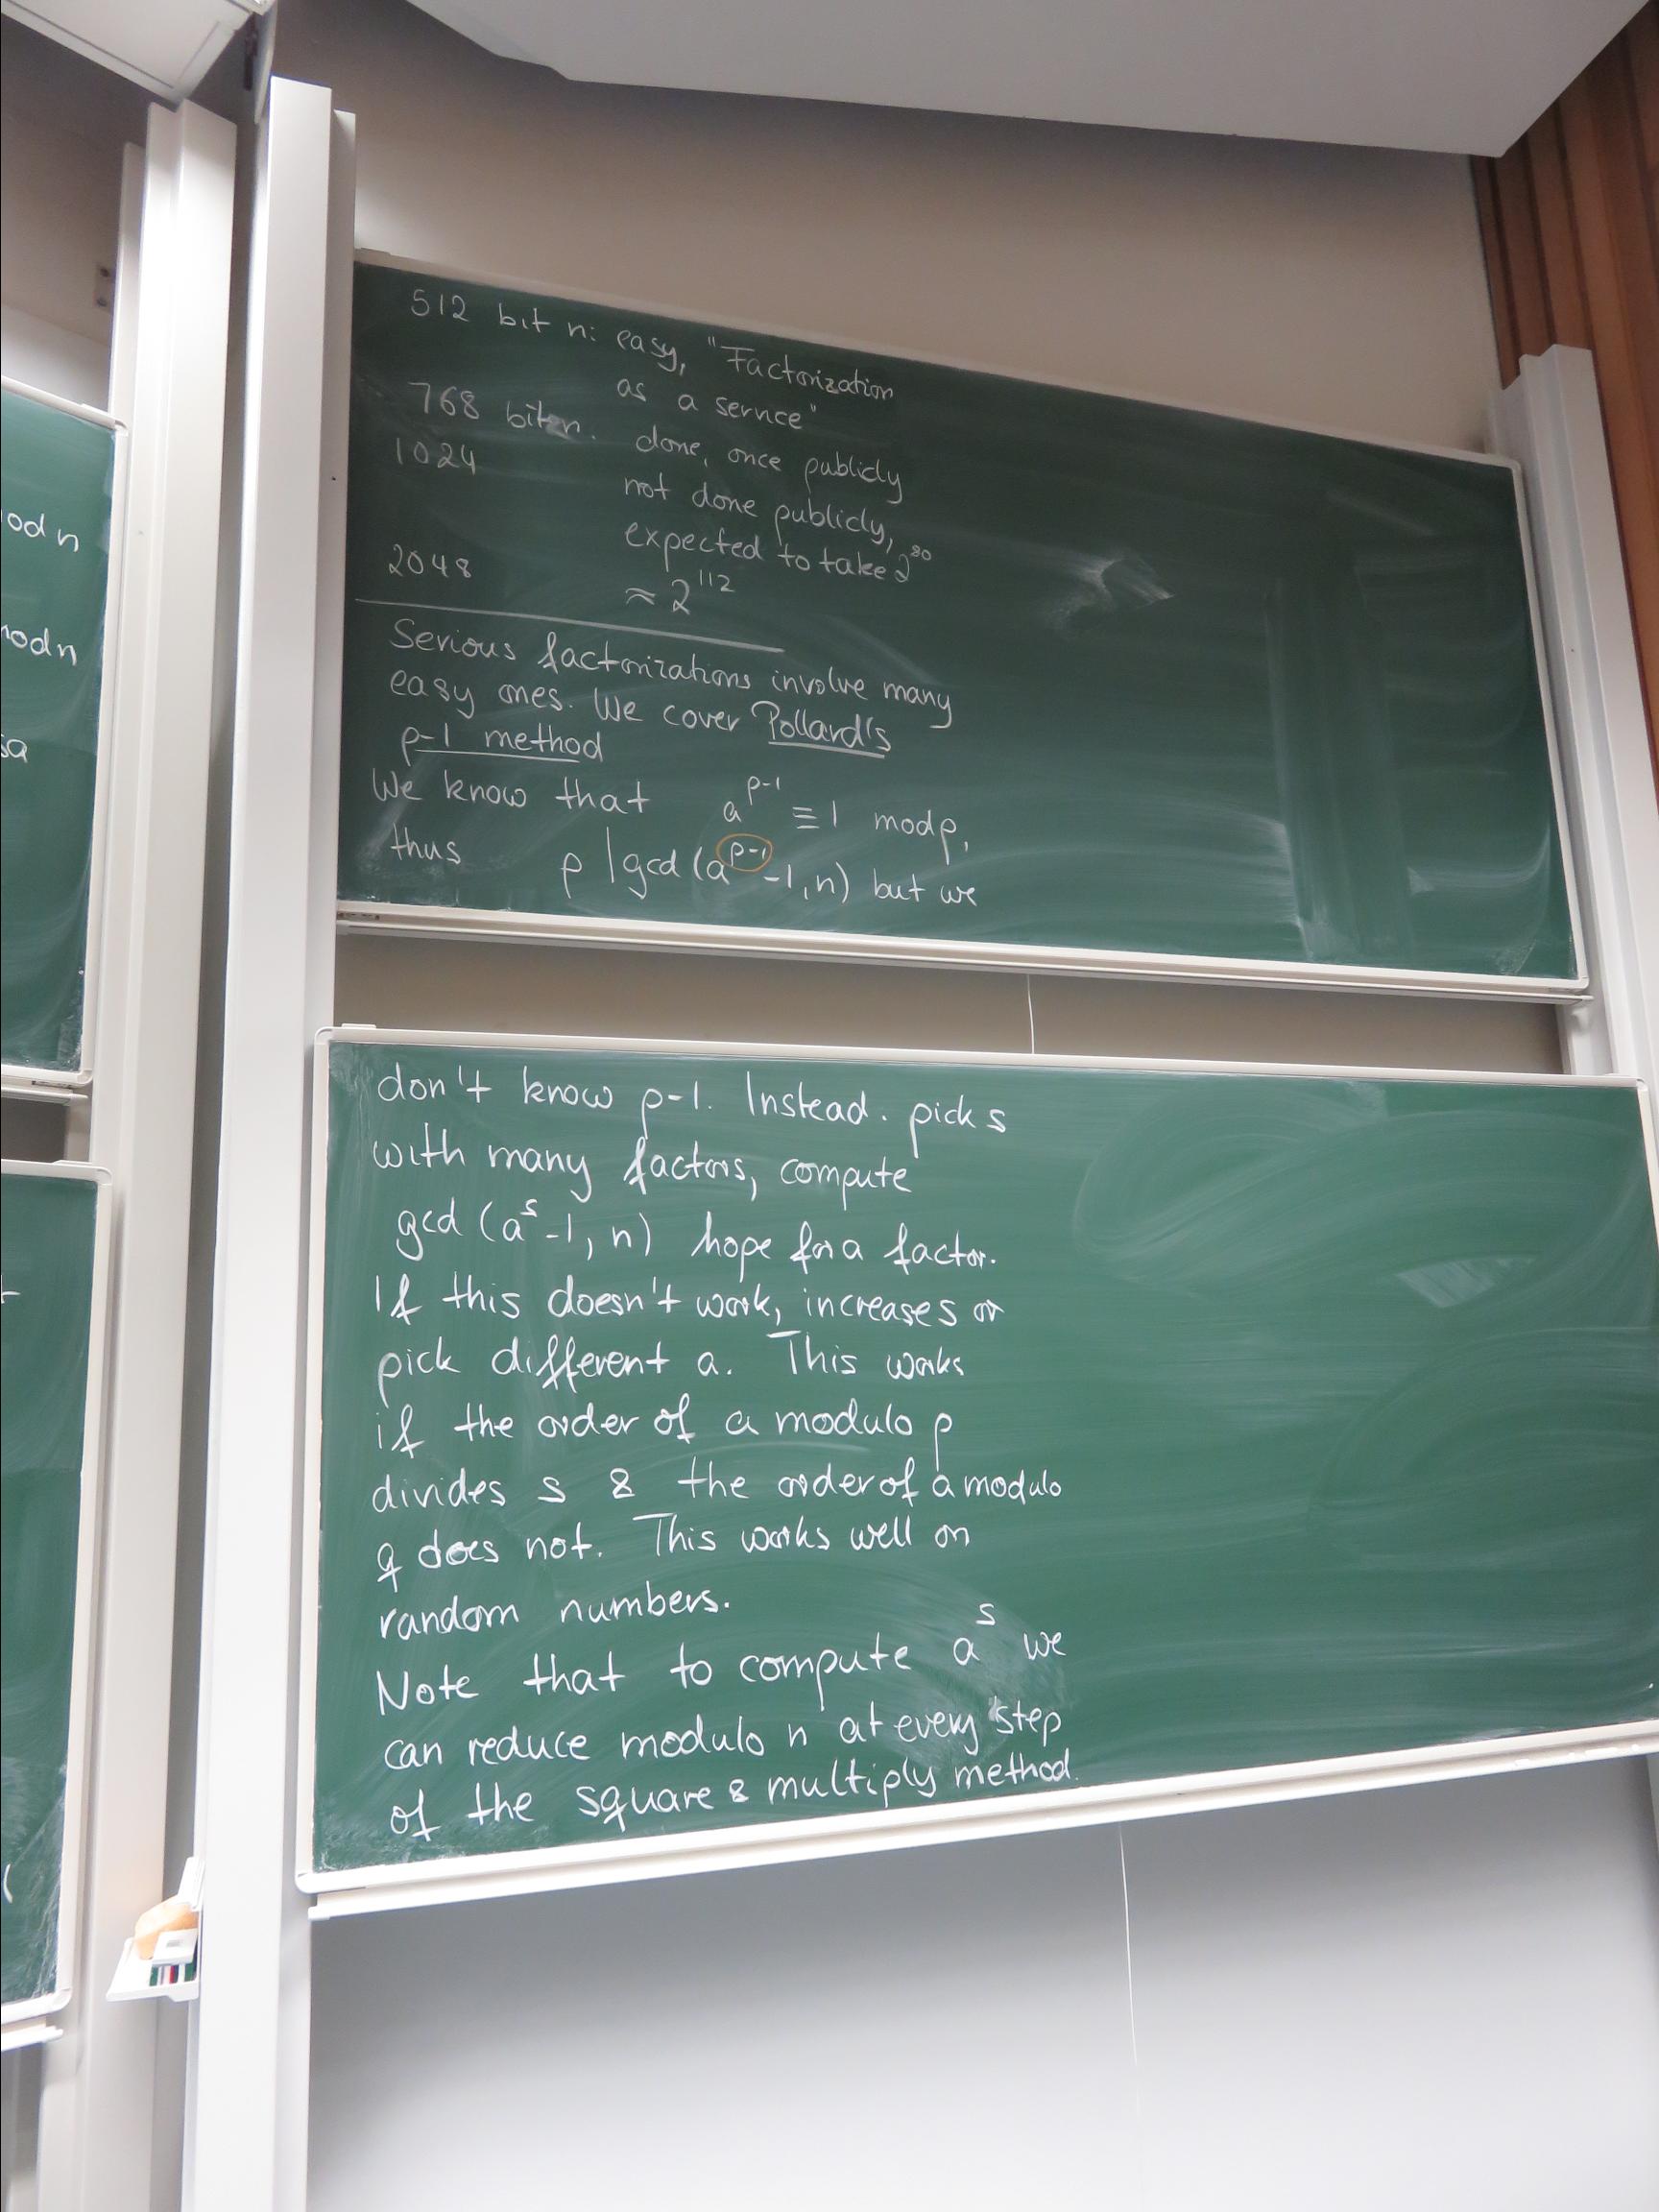 od n
nod n
sa
512 bit n: easy, "Factorization
as a service"
768 bit n. done, once publicly
1024 not done publicly,
expected to take 2^80
2048 ≈ 2^112
Serious factorizations involve many
easy ones. We cover Pollard's
p-1 method
We know that a^{p-1} ≡ 1 mod p,
thus p | gcd (a^{p-1} -1, n) but we
don't know p-1. Instead. pick s
with many factors, compute
gcd (a^s -1, n) hope for a factor.
If this doesn't work, increase s or
pick different a. This works
if the order of a modulo p
divides s & the order of a modulo
q does not. This works well on
random numbers.
Note that to compute a^s we
can reduce modulo n at every step
of the square & multiply method.